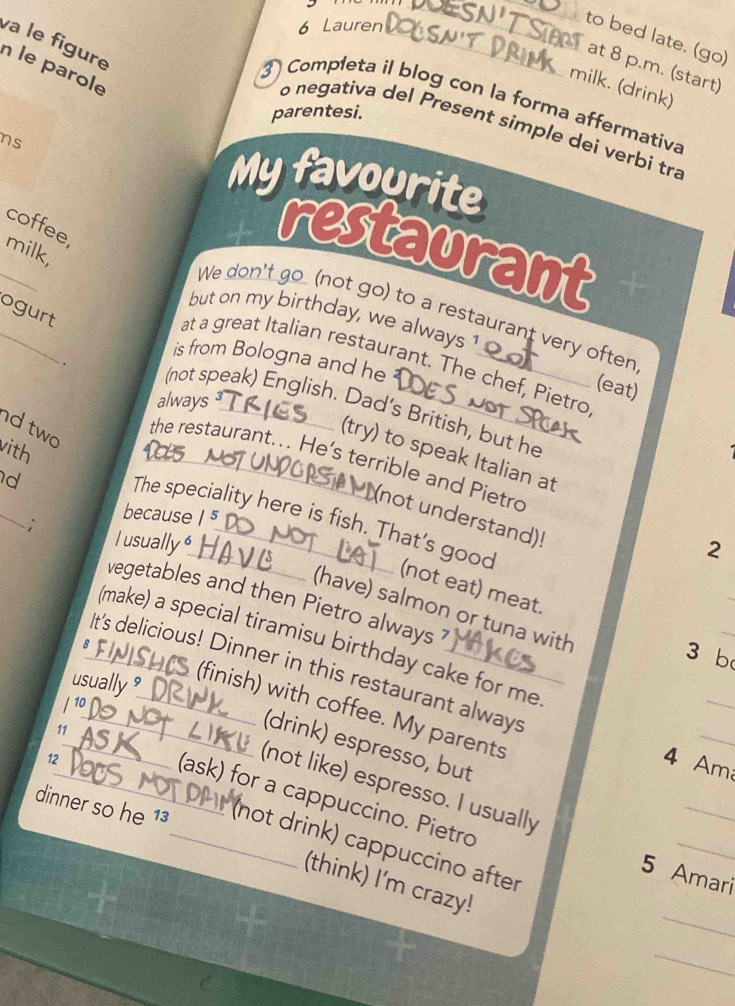 to bed late. (go)
DOESN'T START at 8 p.m. (start)
6 Lauren DOESN'T DRINK milk. (drink)
va le figure
n le parole
3 Completa il blog con la forma affermativa
o negativa del Present simple dei verbi tra
parentesi.
ns
coffee,
milk,
ogurt
.
nd two
with
nd
;
My favourite
restaurant
We don't go (not go) to a restaurant very often,
but on my birthday, we always 1 eat (eat)
at a great Italian restaurant. The chef, Pietro,
is from Bologna and he 2 DOES NOT SPEAK
(not speak) English. Dad's British, but he
always 3 TRIES (try) to speak Italian at
the restaurant... He's terrible and Pietro
4 DOES NOT UNDERSTAND (not understand)!
The speciality here is fish. That's good
because I 5 DO NOT EAT (not eat) meat.
I usually 6 HAVE (have) salmon or tuna with
vegetables and then Pietro always 7 MAKES
(make) a special tiramisu birthday cake for me.
It's delicious! Dinner in this restaurant always
8 FINISHES (finish) with coffee. My parents
usually 9 DRINK (drink) espresso, but
I 10 DO NOT LIKE (not like) espresso. I usually
11 ASK (ask) for a cappuccino. Pietro
12 DOES NOT DRINK (not drink) cappuccino after
dinner so he 13 (think) I'm crazy!
2
3 b
4 Ama
5 Amari